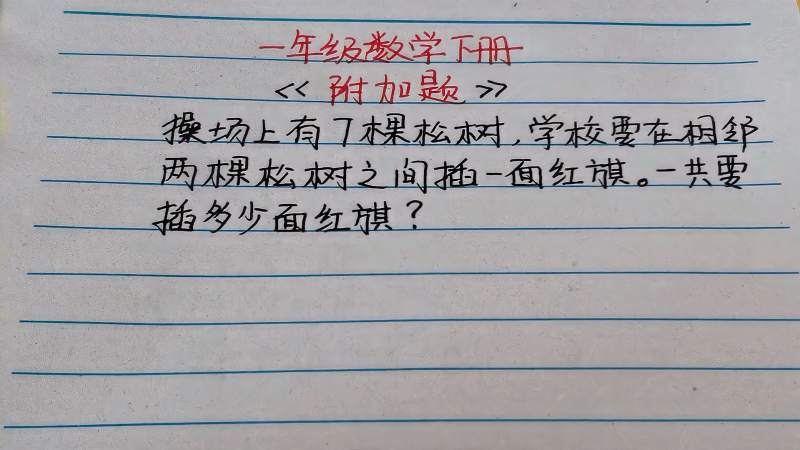 一年级数学下册
<< 附加题 >>
操场上有7棵松树,学校要在相邻
两棵松树之间插一面红旗。一共要
插多少面红旗?